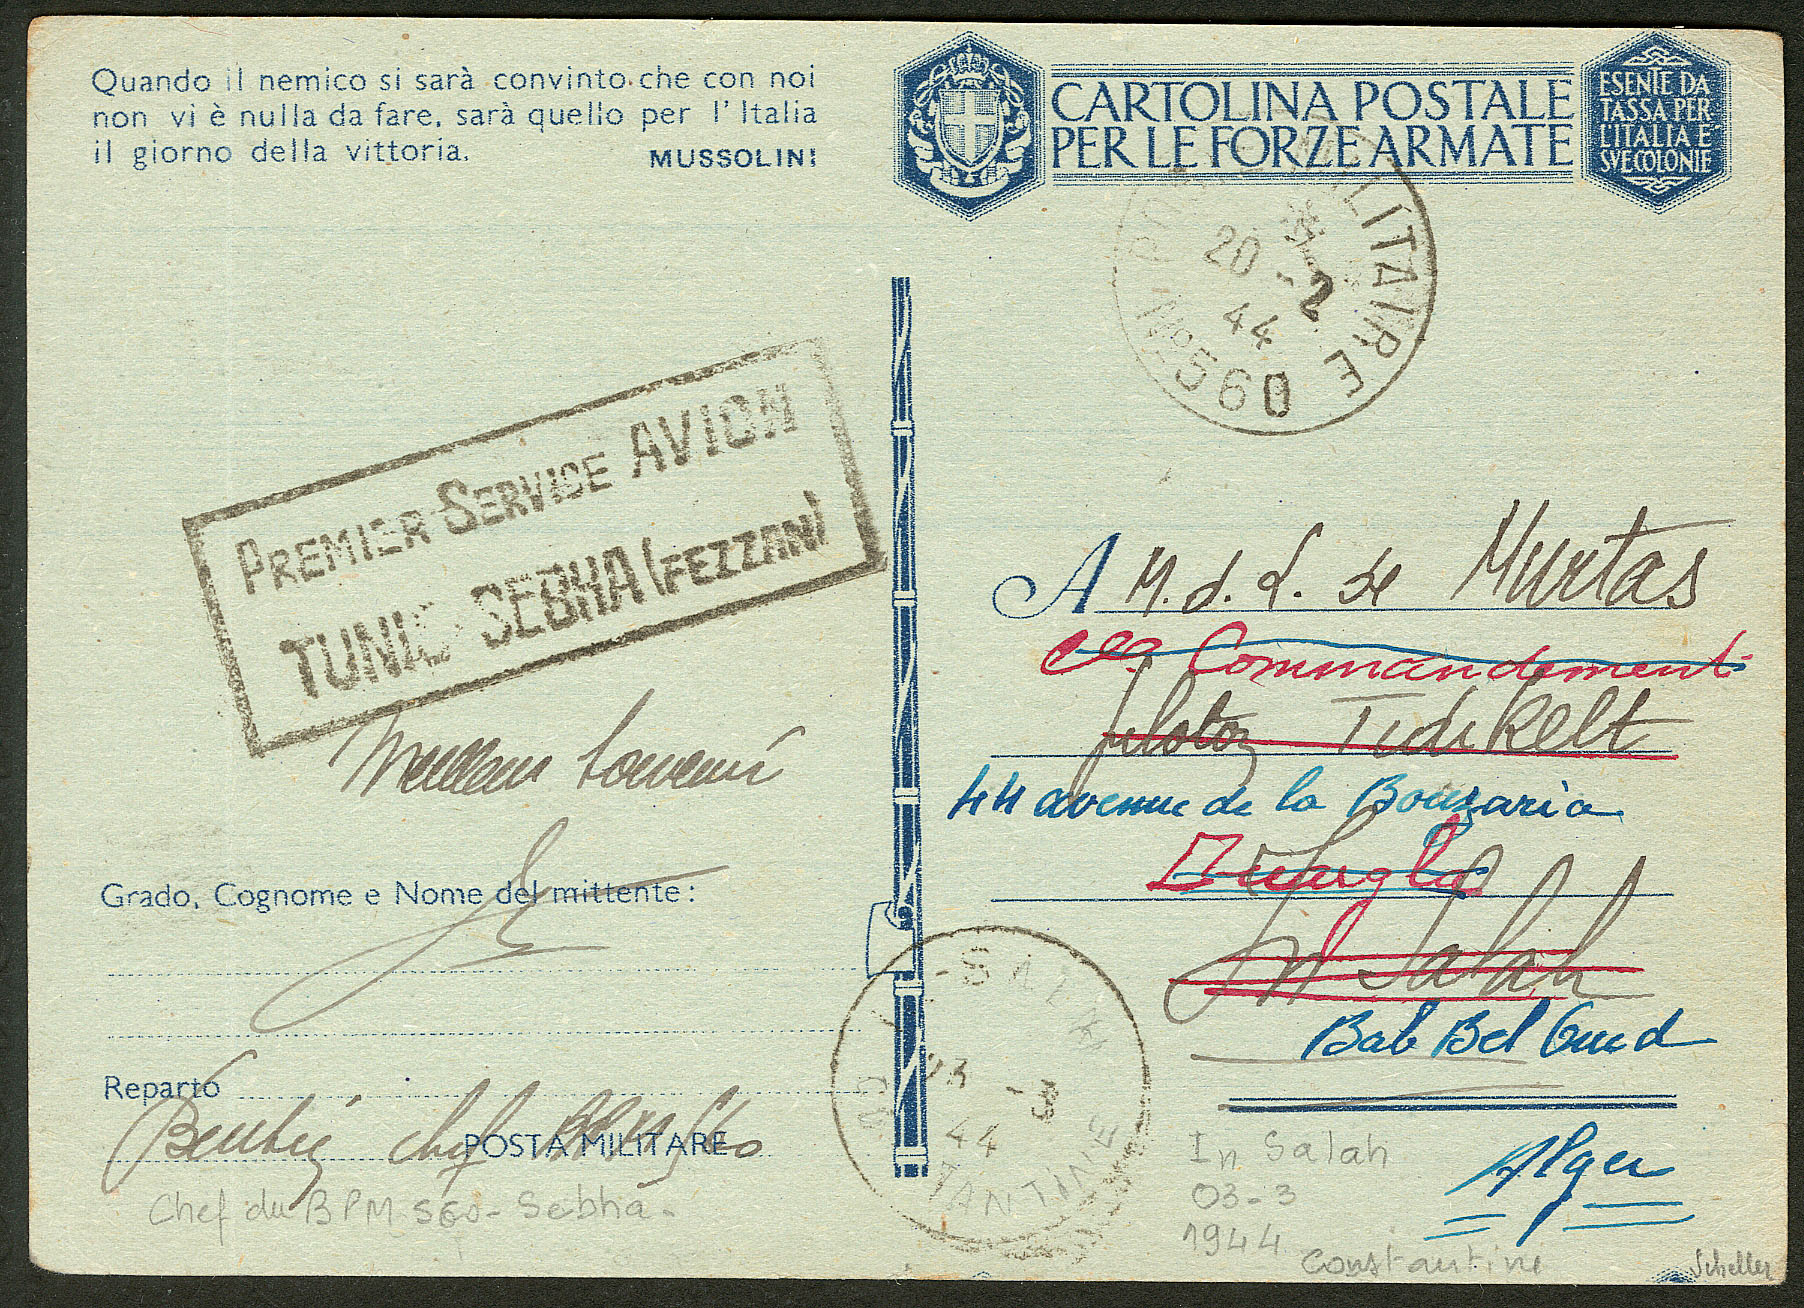 Quando il nemico si sarà convinto che con noi
non vi è nulla da fare, sarà quello per l'Italia
il giorno della vittoria.
MUSSOLINI
CARTOLINA POSTALE
PER LE FORZE ARMATE
ESENTE DA
TASSA PER
L'ITALIA E
SVE COLONIE
MILITAIRE
20 -2
44
Nº 560
PREMIER SERVICE AVION
TUNIS SEBHA (FEZZAN)
A M. d. L. de Murtas
Commandement
Tidikelt
44 avenue de la Bouzaria
In Salah
Bab Bel Oued
Alger
Grado, Cognome e Nome del mittente:
Reparto
chef
POSTA MILITARE
Chef du BPM 560 - Sebha -
SALAH
03 -3
44
TANTINE
In Salah
03-3
1944
Constantine
Scheller